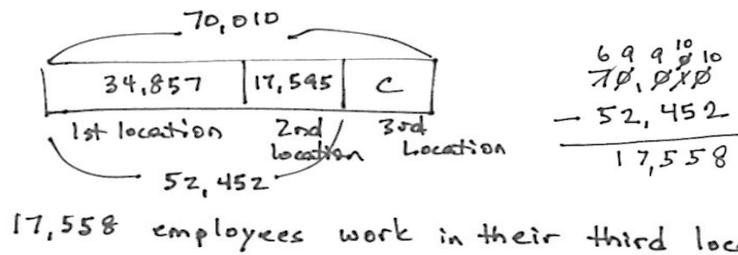 70,010
34,857 17,595 C
1st location 2nd location 3rd Location
52,452
6 9 9 10 10
70,010
- 52,452
17,558
17,558 employees work in their third loc